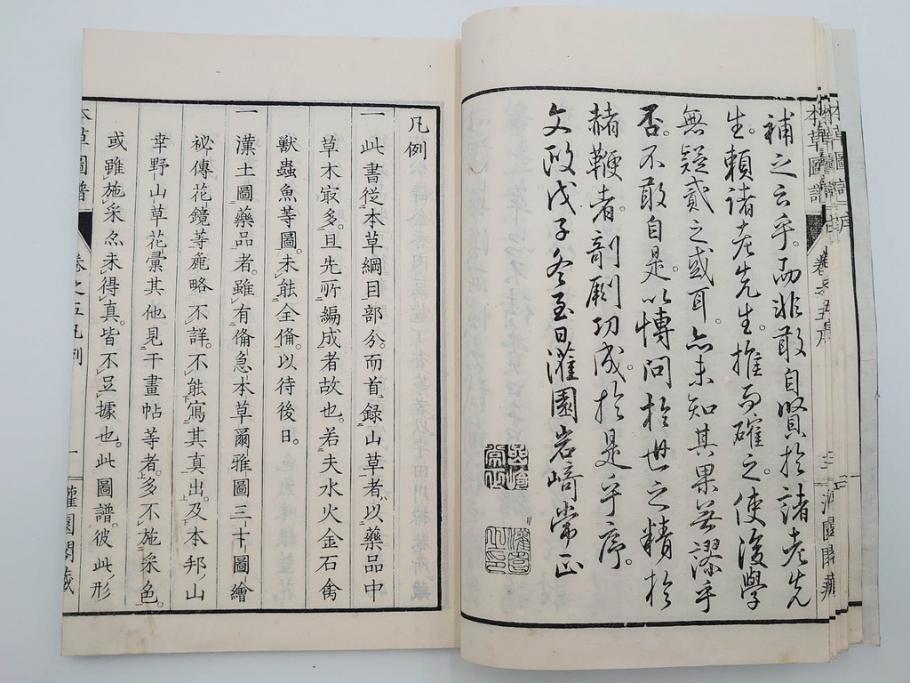 本草圖譜 卷之五序 三
補之云乎。而非敢自賢於諸老先
生。賴諸老先生。推而確之。使後學
無疑貳之或耳。亦未知其果無謬乎
否。不敢自是。以博問於世之精於
赭鞭者。剞劂功成。於是乎序。
文政戊子冬至日灌園岩﨑常正
凡例
一此書從本草綱目部分。而首錄山草者。以藥品中
草木㝡多。且先所編成者故也。若夫水火金石禽
獸蟲魚等圖。未能全脩。以待後日。
一漢土圖藥品者。雖有脩急本草爾雅圖三才圖繪
祕傳花鏡等麁略不詳。不能寫其真出。及本邦山
幸野山草花彙其他見于畫帖等者。多不施采色。
或雖施采亦未得真。皆不足據也。此圖譜。彼此形
本草圖譜 卷之五凡例 一 灌園閣藏